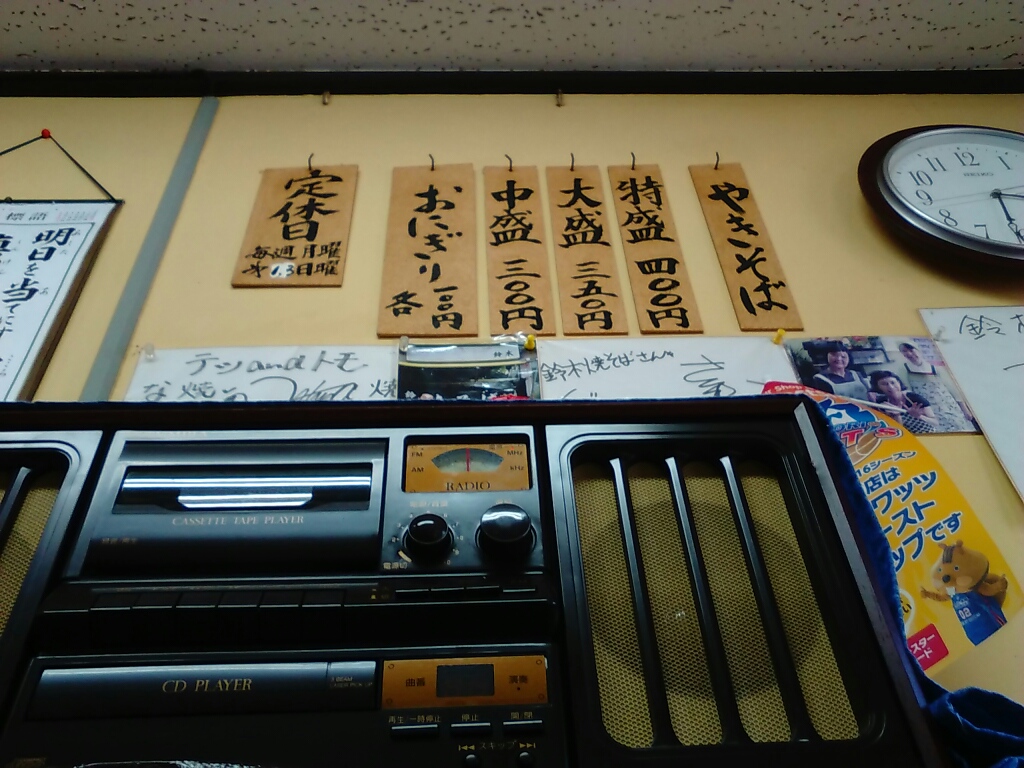 標語
明日を当てにす
定休日
毎週月曜
オ1.3日曜
おにぎり 各一〇〇円
中盛 三〇〇円
大盛 三五〇円
特盛 四〇〇円
やきそば
10 11 12 1
9
8
7 6
SEIKO
テツandトモ
な焼
鈴木
鈴木焼そばさん
鈴
Shop
16シーズン
店は
ワッツ
ースト
ップです
スター
ード
FM MHz
AM kHz
RADIO
CASSETTE TAPE PLAYER
電源切
CD PLAYER
曲番
演奏
再生/一時停止
停止
開/閉
スキップ